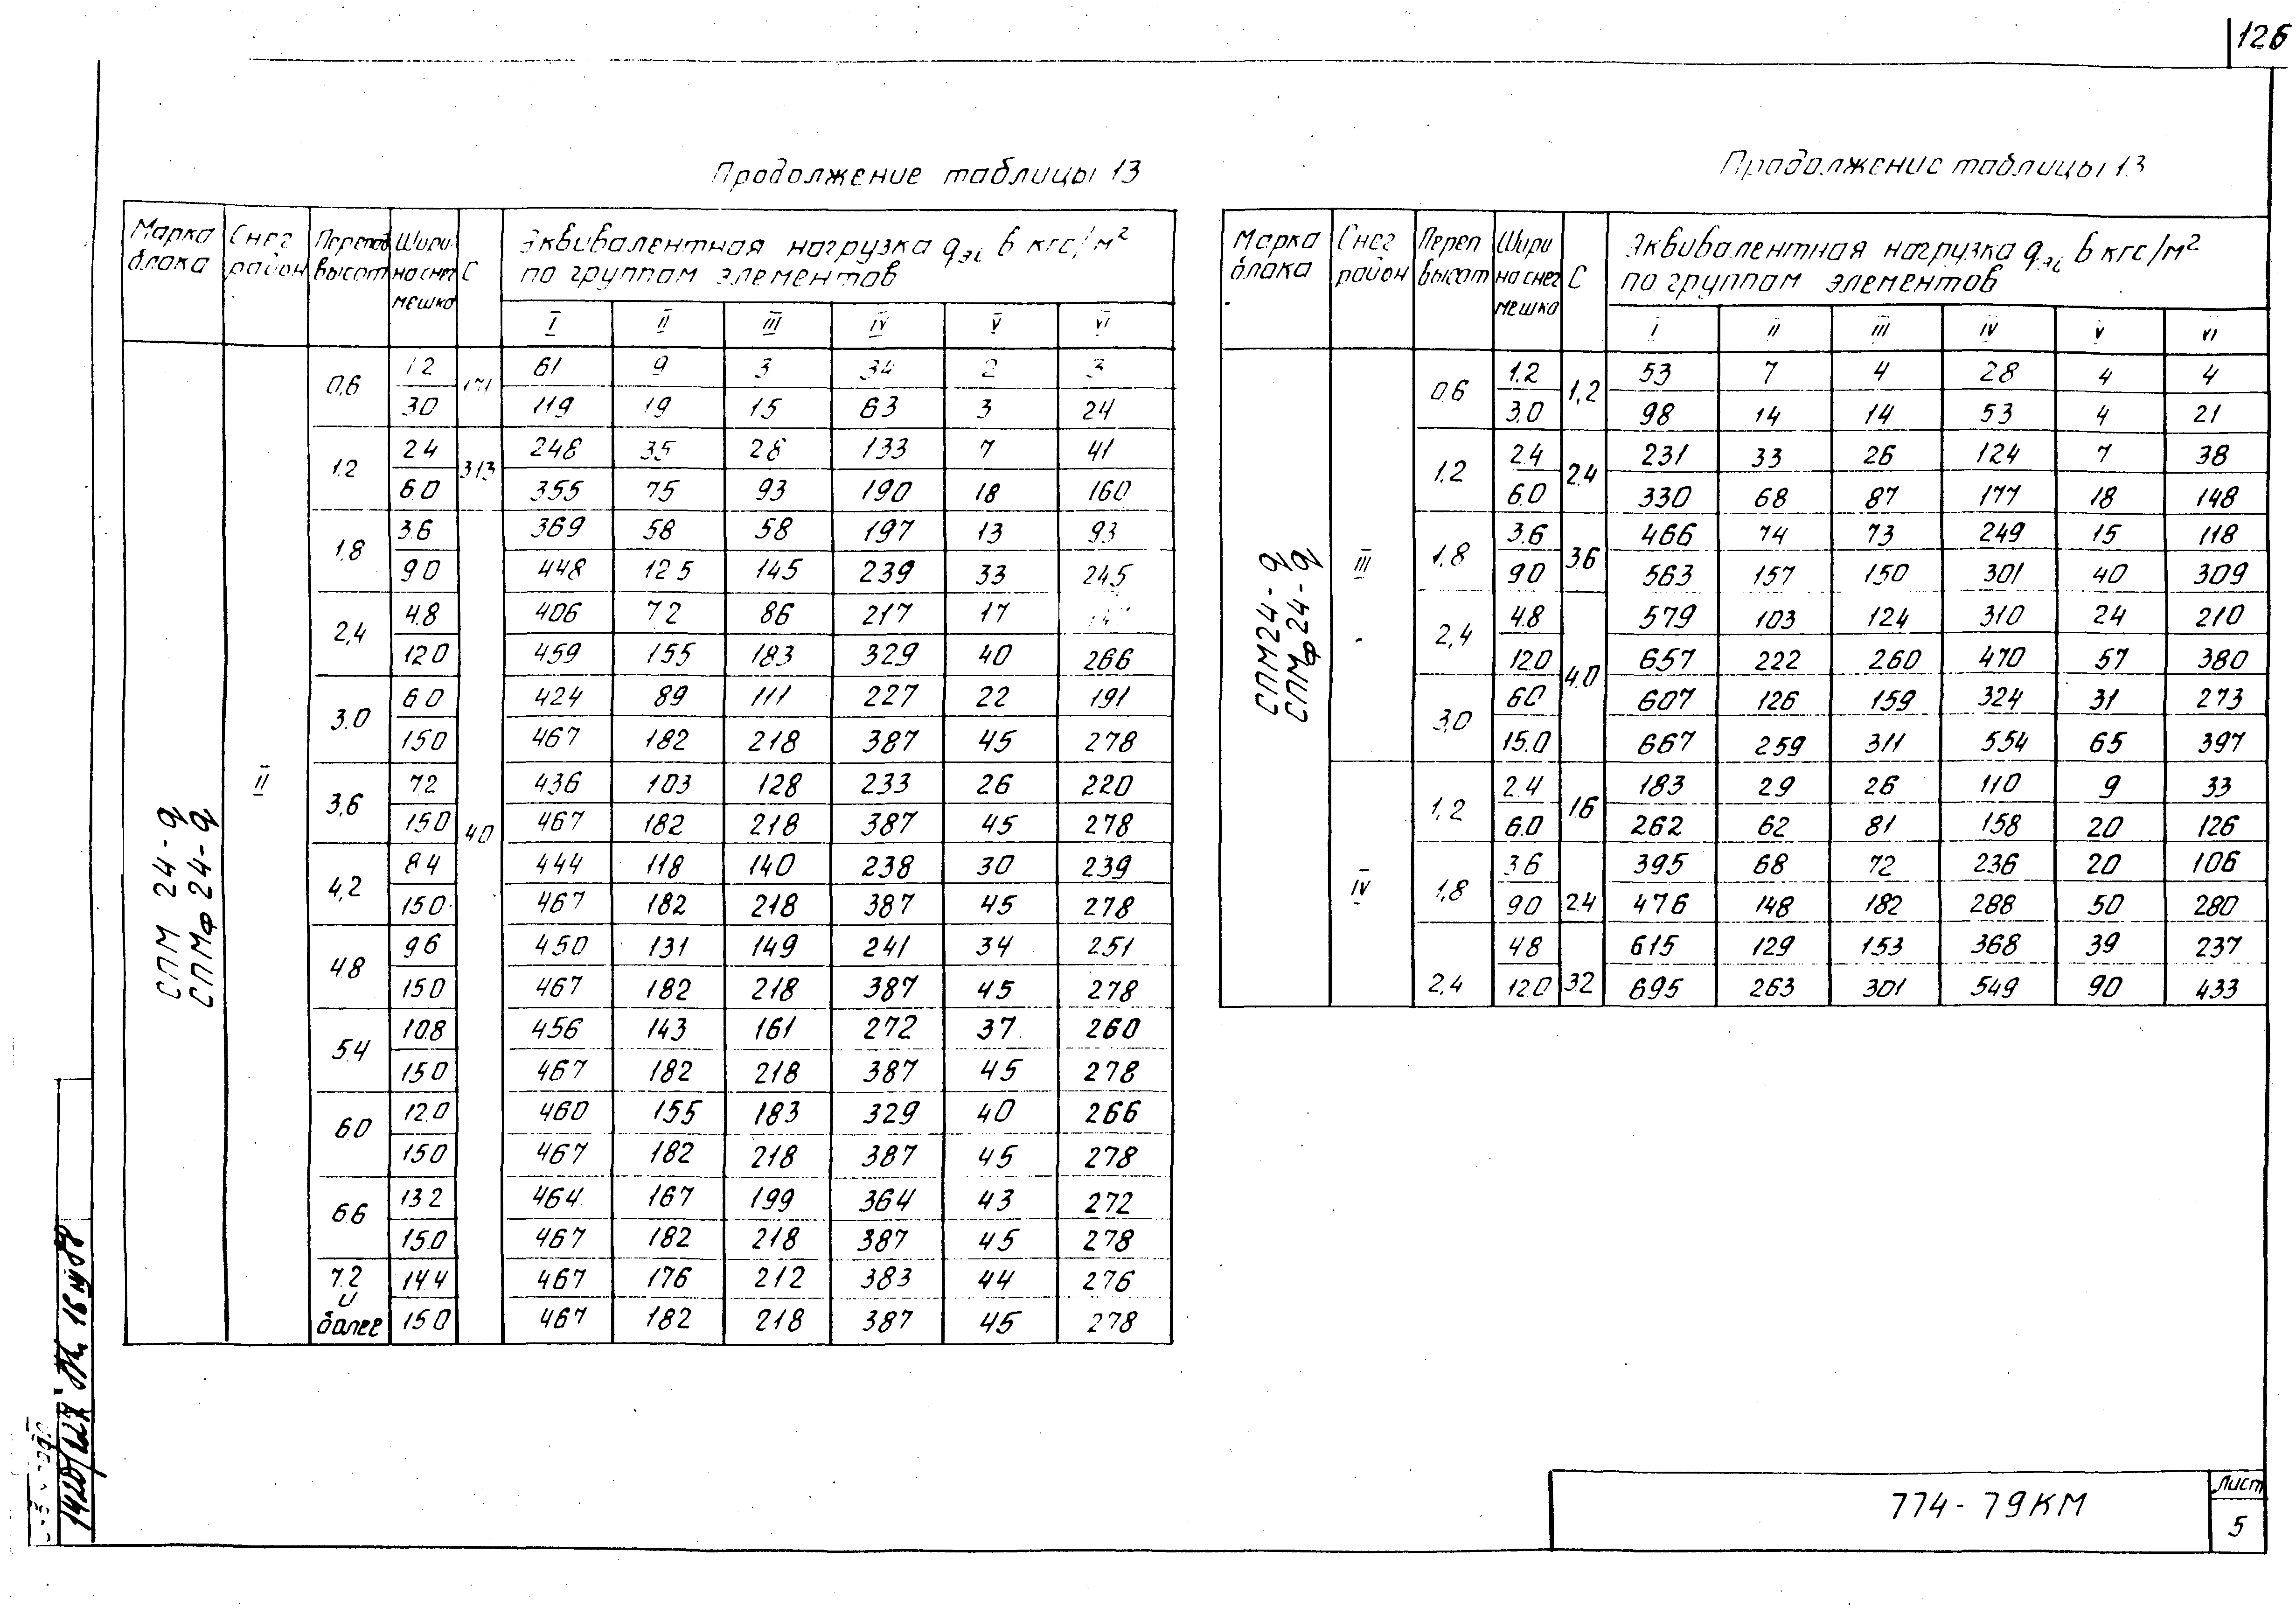 126
Продолжение таблицы 13
Марка блока | Снег район | Перепад высот | Шири на снег мешка | С | Эквивалентная нагрузка qэi в кгс/м² по группам элементов
I | II | III | IV | V | VI
СПМ 24-q
СПМФ 24-q
II
0,6 | 1 2 | 171 | 61 | 9 | 3 | 34 | 2 | 3
30 | 119 | 19 | 15 | 63 | 3 | 24
1.2 | 24 | 313 | 248 | 35 | 28 | 133 | 7 | 41
60 | 355 | 75 | 93 | 190 | 18 | 160
1,8 | 3.6 | 369 | 58 | 58 | 197 | 13 | 93
90 | 448 | 125 | 145 | 239 | 33 | 245
2,4 | 4.8 | 406 | 72 | 86 | 217 | 17
120 | 459 | 155 | 183 | 329 | 40 | 266
3.0 | 60 | 424 | 89 | 111 | 227 | 22 | 191
150 | 467 | 182 | 218 | 387 | 45 | 278
3,6 | 72 | 40 | 436 | 103 | 128 | 233 | 26 | 220
150 | 467 | 182 | 218 | 387 | 45 | 278
4,2 | 84 | 444 | 118 | 140 | 238 | 30 | 239
150 | 467 | 182 | 218 | 387 | 45 | 278
48 | 96 | 450 | 131 | 149 | 241 | 34 | 251
150 | 467 | 182 | 218 | 387 | 45 | 278
54 | 10.8 | 456 | 143 | 161 | 272 | 37 | 260
150 | 467 | 182 | 218 | 387 | 45 | 278
60 | 12.0 | 460 | 155 | 183 | 329 | 40 | 266
150 | 467 | 182 | 218 | 387 | 45 | 278
66 | 13.2 | 464 | 167 | 199 | 364 | 43 | 272
15.0 | 467 | 182 | 218 | 387 | 45 | 278
7.2 и более | 14.4 | 467 | 176 | 212 | 383 | 44 | 276
150 | 467 | 182 | 218 | 387 | 45 | 278
Продолжение таблицы 13
Марка блока | Снег район | Переп высот | Шири на снег мешка | С | Эквивалентная нагрузка qэi в кгс/м² по группам элементов
I | II | III | IV | V | VI
СПМ24-q
СПМФ24-q
III
0.6 | 1.2 | 1,2 | 53 | 7 | 4 | 28 | 4 | 4
3.0 | 98 | 14 | 14 | 53 | 4 | 21
1.2 | 2.4 | 2.4 | 231 | 33 | 26 | 124 | 7 | 38
6.0 | 330 | 68 | 87 | 177 | 18 | 148
1.8 | 3.6 | 3.6 | 466 | 74 | 73 | 249 | 15 | 118
90 | 563 | 157 | 150 | 301 | 40 | 309
2,4 | 4.8 | 4.0 | 579 | 103 | 124 | 310 | 24 | 210
12.0 | 657 | 222 | 260 | 470 | 57 | 380
3,0 | 60 | 607 | 126 | 159 | 324 | 31 | 273
15.0 | 667 | 259 | 311 | 554 | 65 | 397
IV
1,2 | 2.4 | 16 | 183 | 29 | 26 | 110 | 9 | 33
6.0 | 262 | 62 | 81 | 158 | 20 | 126
1,8 | 3.6 | 2.4 | 395 | 68 | 72 | 236 | 20 | 106
90 | 476 | 148 | 182 | 288 | 50 | 280
2,4 | 48 | 32 | 615 | 129 | 153 | 368 | 39 | 237
12.0 | 695 | 263 | 301 | 549 | 90 | 433
774-79КМ
Лист
5